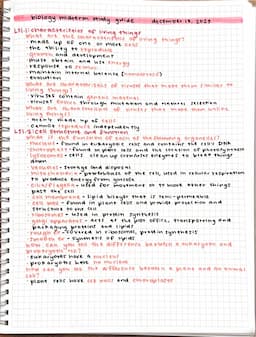 biology midterm study guide december 14, 2023
LS1-1: Characteristics of living things
What are the characteristics of living things?
- made up of one or more cells
- the ability to reproduce
- growth and development
- must obtain and use energy
- response to stimuli
- maintain internal balance (homeostasis)
- evolution
What are characteristics of viruses that make them similar to living things?
- viruses contain genetic material
- viruses evolve through mutation and natural selection
What are characteristics of viruses that make them unlike living things?
- not made up of cells
- cannot reproduce independently
LS1-2: Cell structure and function
What is the function of each of the following organelles?
- nucleus - found in eukaryotic cells and contains the cell's DNA
- chloroplast - found in plant cells and the location of photosynthesis
- lysosome - cell's clean up crew/uses enzymes to break things down
- vacuole - storage and disposal
- mitochondria - powerhouse of the cell, used in cellular respiration to produce energy from glucose
- cilia/flagella - used for movement or to move other things past the cell
- cell membrane - lipid bilayer that is semi-permeable
- cell wall - found in plant cells and provide protection and structure to the cell
- ribosomes - used in protein synthesis
- golgi apparatus - acts as the post office, transporting and packaging proteins and lipids
- rough er - covered in ribosomes, protein synthesis
- smooth er - synthesis of lipids
How can you tell the difference between a eukaryotic and prokaryotic cell?
- eukaryotes have a nucleus
- prokaryotes have no nucleus
How can you tell the difference between a plant and an animal cell?
- plant cells have cell walls and chloroplasts